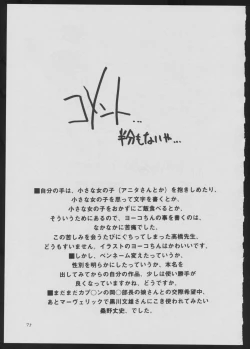 コメント…
半分もないや…
■自分の手は、小さな女の子（アニタさんとか）を抱きしめたり、
小さな女の子を思って文字を書くとか、
小さな女の子をおかずにご飯食べるとか、
そういうためにあるので、ヨーコちんの事を書くのは、
なかなかに苦痛でした。
この苦しみを会うたびにぐちってしまった高橋先生、
どうもすいません、イラストのヨーコちんはかわいいです。
■しかし、ペンネーム変えたっていうか、
性別を明らかにしたっていうか、本名を
出してみてからの自分の作品、少しは使い勝手が
良くなったっていうか、どうでしょうか。
■まだまだカプ〇ンの岡〇部長の娘さんとの交際希望中、
あとマーヴェリックで黒川文雄さんにこき使われてみたい
桑野丈史、でした。